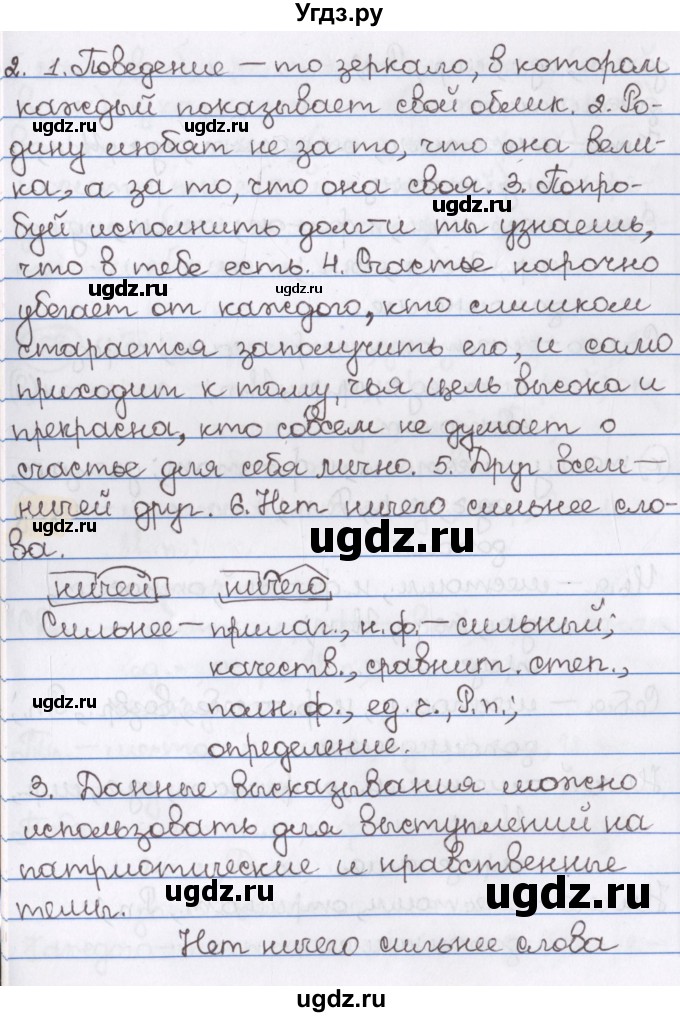 Угдз.ру
2. 1. Поведение – то зеркало, в котором
каждый показывает свой облик. 2. Ро-
ugdz.ru ugdz.ru
дину любят не за то, что она вели-
ка, а за то, что она своя. 3. Попро-
ugdz.ru
буй исполнить долг – и ты узнаешь,
что в тебе есть. 4. Счастье нарочно
ugdz.ru ugdz.ru
убегает от каждого, кто слишком
старается заполучить его, и само
приходит к тому, чья цель высока и
прекрасна, кто совсем не думает о
счастье для себя лично. 5. Друг всем –
ничей друг. 6. Нет ничего сильнее сло-
ugdz.ru
ва.
ничей ничего
Сильнее – прилаг., н.ф. – сильный;
качеств., сравнит. степ.,
ugdz.ru
полн.ф., ед.ч., Р.п.;
определение
3. Данные высказывания можно
использовать для выступлений на
патриотические и нравственные
ugdz.ru ugdz.ru
темы.
Нет ничего сильнее слова
ugdz.ru